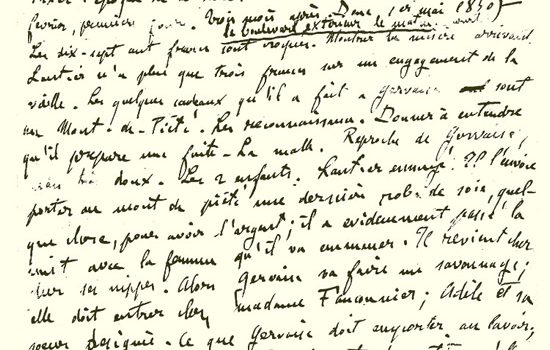 février, premier jour. Trois mois après. Donc, 1er mai 1850
le boulevard extérieur le matin
Les dix-sept cent francs sont croqués. Montrer la misère arrivant
Lantier n'a plus que trois francs sur un engagement de la
veille. Les quelques cadeaux qu'il a fait a Gervaise sont
au Mont-de-Piété. Les reconnaissances. Donner à entendre
qu'il prépare une fuite. La malle. Reproche de Gervaise,
doux. Les 2 enfants. Lantier ennuyé. Il l'envoie
porter au mont de piété une dernière robe de soie, quel-
que chose, pour avoir l'argent; il a evidemment passé la
nuit avec la femme qu'il va emmener. Il revient cher-
cher ses nippes. Alors Gervaise va faire un savonnage;
elle doit entrer chez madame Fauconnier; Adèle et sa
soeur désignée. Ce que Gervaise doit emporter au lavoir,